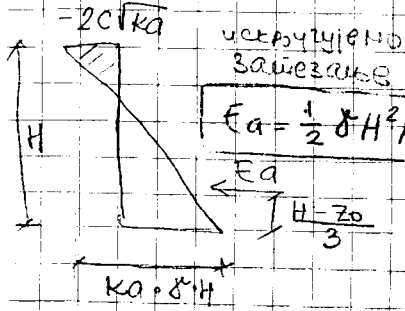 -2c√ka
искључујемо
затезање
H
Ea = 1/2 γH²
Ea
H-z₀/3
ka·γ·H